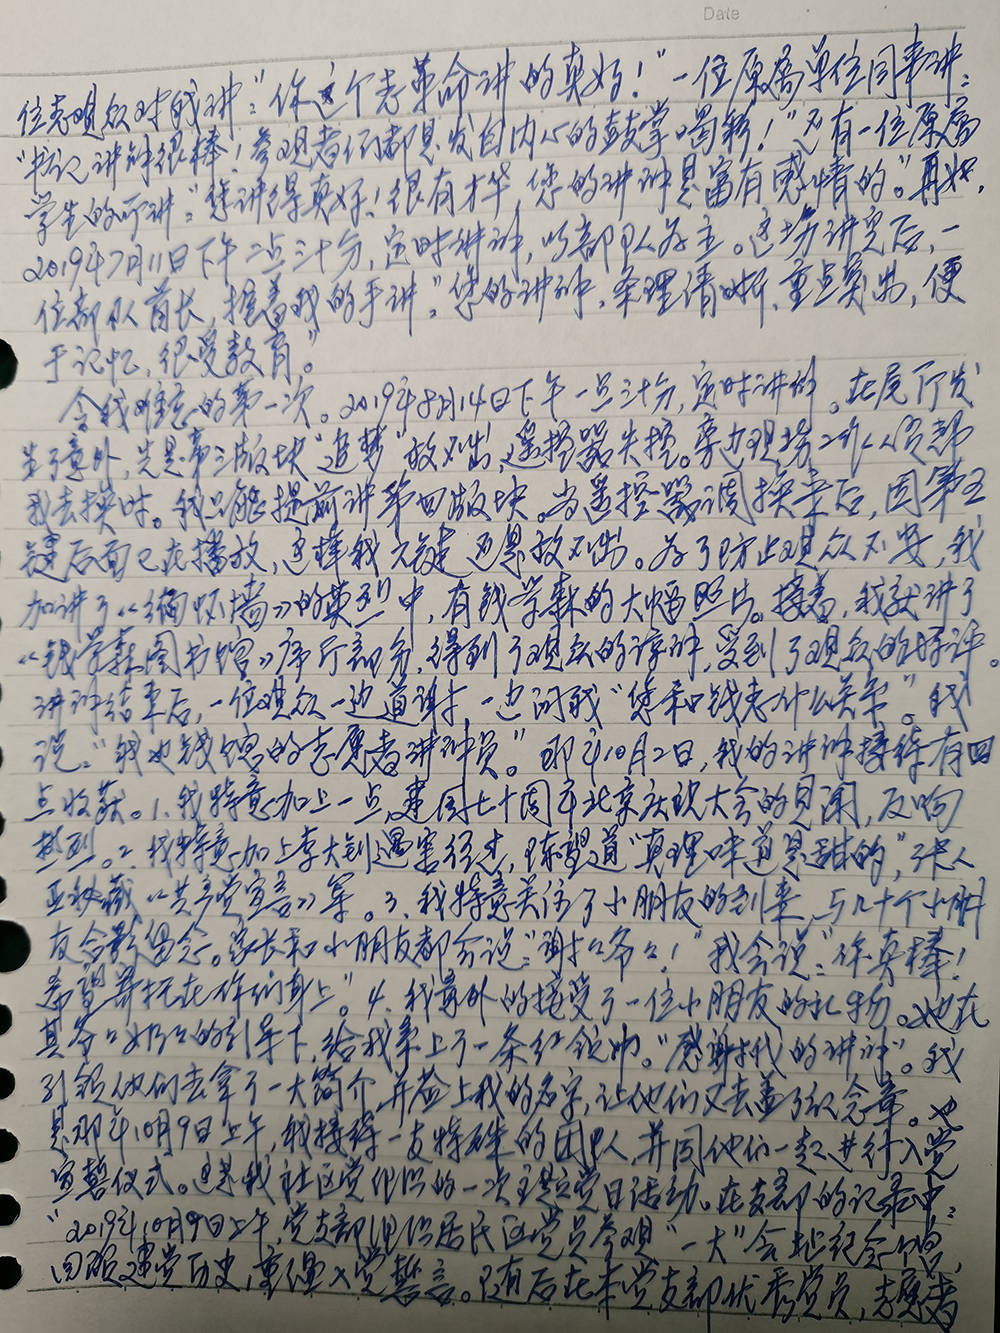 Date
位老观众对我讲："你这个老革命讲的真好！"一位原属单位同事讲：
"书记讲解很棒！参观者们都是发自内心的鼓掌喝彩！"还有一位原属
学生的听讲："您讲得真好！很有才华，您的讲解是富有感情的。"再如，
2019年7月11日下午二点三十分，定时讲解，以部队为主。这场讲完后，一
位部队首长，握着我的手讲："您的讲解，条理清晰，重点突出，便
于记忆，很受教育。"
令我难忘的第一次。2019年8月14日下午一点三十分，定时讲解。在尾厅发
生了意外，先是第三版块"追梦"放不出，遥控器失控。旁边现场工作人员帮
我去换时。我只能提前讲第四版块。当遥控器调换来后，因第五
键后面已在播放，这样我按键还是放不出。为了防止观众不安，我
加讲了《缅怀墙》的英烈中，有钱学森的大幅照片。接着，我就讲了
《钱学森图书馆》序厅部分，得到了观众的谅解，受到了观众的好评。
讲解结束后，一位观众一边道谢，一边问我"您和钱老什么关系"。我
说："我也钱馆的志愿者讲解员。"那年10月2日，我的讲解接待有四
点收获。1.我特意加上一点，建国七十周年北京庆祝大会的见闻，反响
热烈。2.我特意加上李大钊遇害经过，陈望道"真理味道是甜的"，张人
亚秘藏《共产党宣言》等。3.我特意关注了小朋友的到来，与几十个小朋
友合影留念。家长和小朋友都会说："谢谢爷爷！"我会说："你真棒！
希望寄托在你们身上。"4.我意外的接受了一位小朋友的礼物。她在
其爷爷奶奶的引导下，给我系上了一条红领巾。"感谢我的讲解"。我
引领他们去拿了一大简介，并签上我的名字，让他们又去盖了纪念章。也
是那年10月9日上午，我接待一支特殊的团队，并同他们一起进行入党
宣誓仪式。这是我社区党组织的一次主题党日活动。在支部的记录中：
"2019年10月9日上午，党支部组织居民区党员参观"一大"会址纪念馆，
回顾建党历史，重温入党誓言。只有后在本党支部优秀党员，志愿者